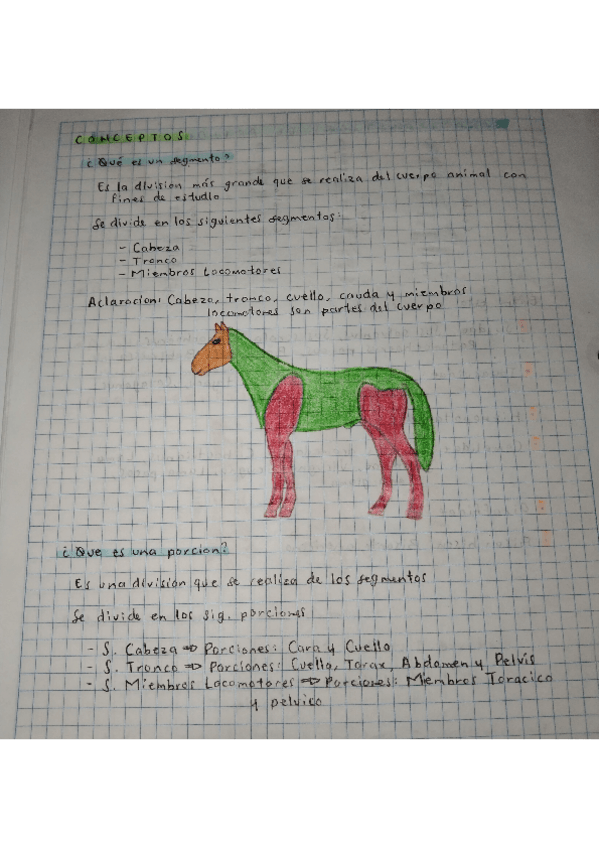 CONCEPTOS
¿Qué es un segmento?
Es la división más grande que se realiza del cuerpo animal con
fines de estudio
Se divide en los siguientes segmentos:
- Cabeza
- Tronco
- Miembros Locomotores
Aclaracion: Cabeza, tronco, cuello, cauda y miembros
locomotores son partes del cuerpo
¿Que es una porcion?
Es una división que se realiza de los segmentos
Se divide en los sig. porciones
- S. Cabeza ⇒ Porciones: Cara y Cuello
- S. Tronco ⇒ Porciones: Cuello, Torax, Abdomen y Pelvis
- S. Miembros Locomotores ⇒ Porciones: Miembros Toracico
y pelvico